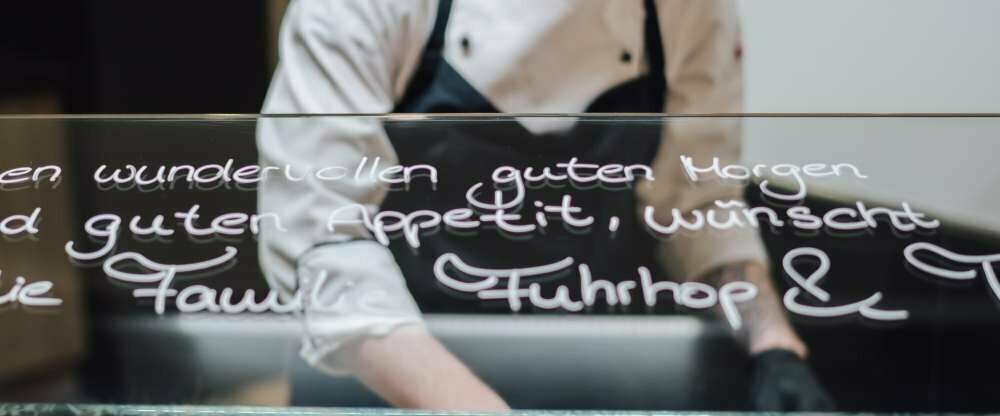 en wundervollen guten Morgen
d guten Appetit, wünscht
ie Familie Fuhrhop &